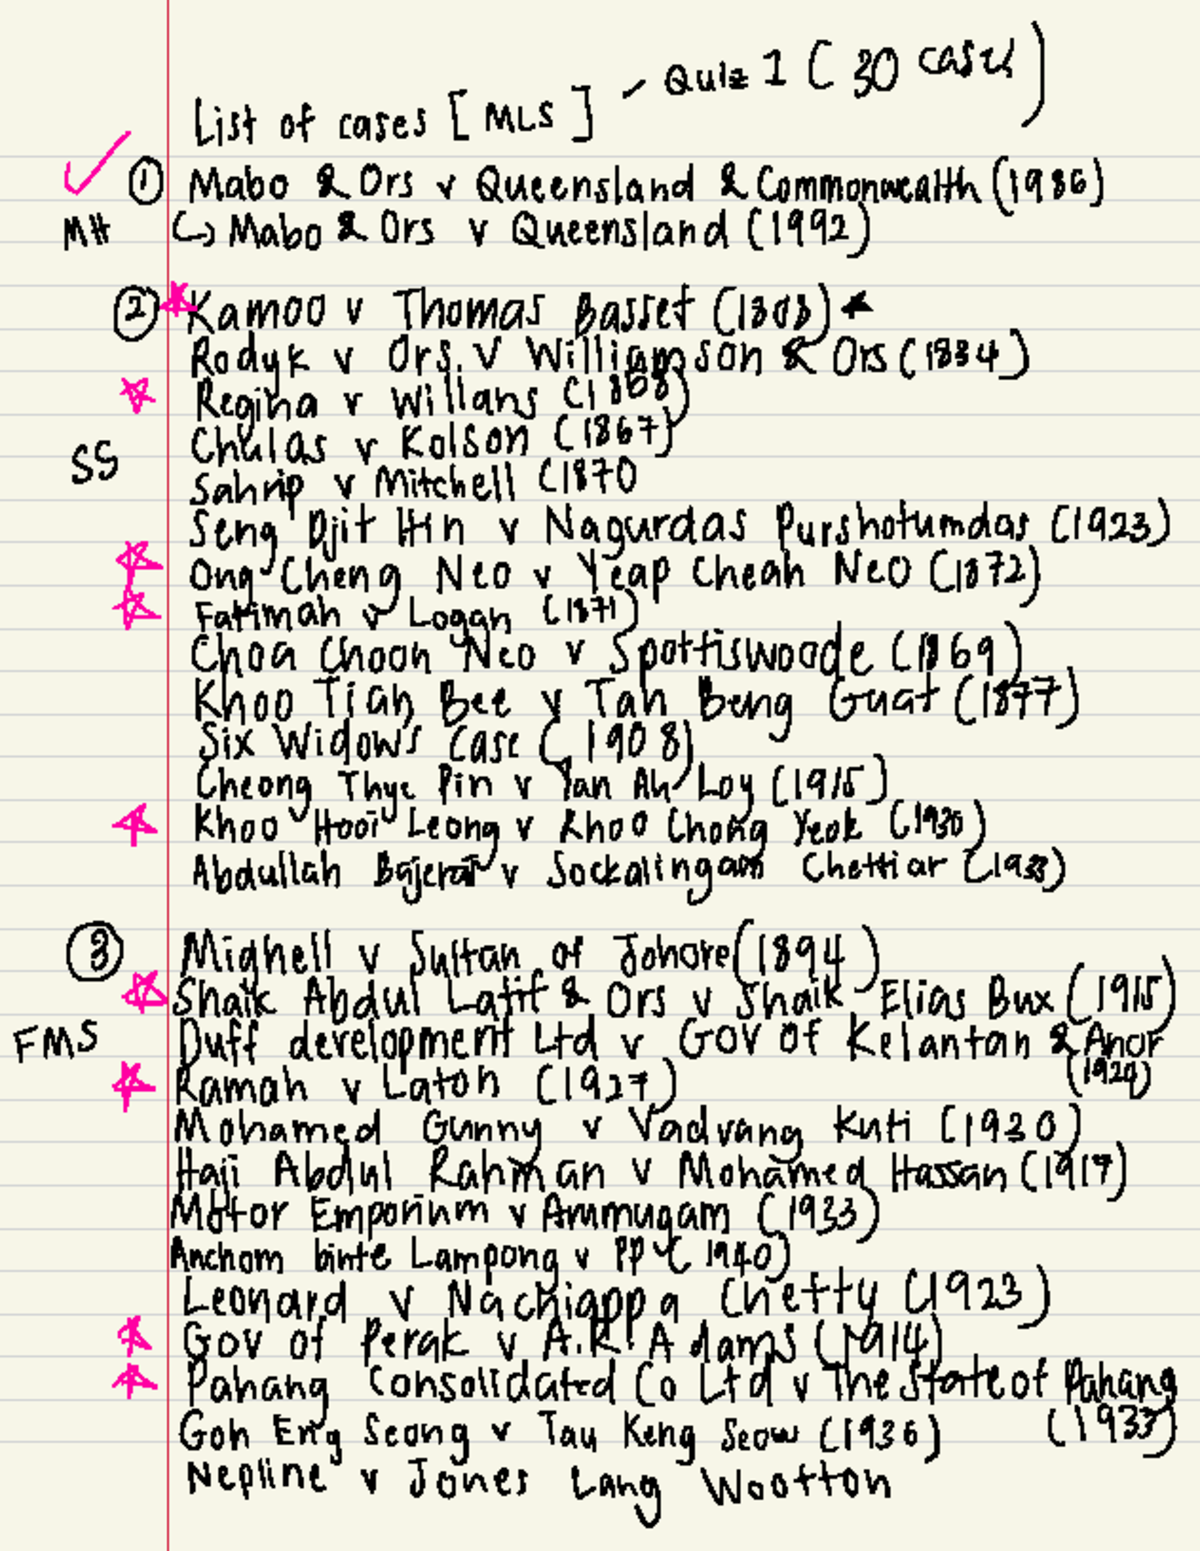 List of cases [MLS] - Quiz 1 (30 cases)
① Mabo & Ors v Queensland & Commonwealth (1986)
MH ↳ Mabo & Ors v Queensland (1992)
② Kamoo v Thomas Basset (1808) ★
Rodyk v Ors. V Williamson & Ors (1834)
Regina v Willans (1868)
Chulas v Kolson (1867)
SS
Sahrip v Mitchell (1870
Seng Djit Hin v Nagurdas Purshotumdas (1923)
Ong Cheng Neo v Yeap Cheah Neo (1872)
Fatimah v Logan (1871)
Choa Choon Neo v Spottiswoode (1869)
Khoo Tian Bee v Tan Beng Guat (1877)
Six Widows case (1908)
Cheong Thye Pin v Tan Ah Loy (1915)
Khoo Hooi Leong v Khoo Chong Yeok (1930)
Abdullah v Sockalingam Chettiar (1933)
③ Mighell v Sultan of Johore (1894)
Shaik Abdul Latif & Ors v Shaik Elias Bux (1915)
FMS Duff development Ltd v Gov of Kelantan & Anor
(1924)
Ramah v Laton (1927)
Mohamed Gunny v Vadvang Kuti (1930)
Haji Abdul Rahman v Mohamed Hassan (1917)
Motor Emporium v Arumugam (1933)
Anchom binte Lampong v PP (1940)
Leonard v Nachiappa Chetty (1923)
Gov of Perak v A.R. Adams (1914)
Pahang Consolidated Co Ltd v The State of Pahang
(1933)
Goh Eng Seong v Tay Keng Seow (1936)
Nepline v Jones Lang Wootton